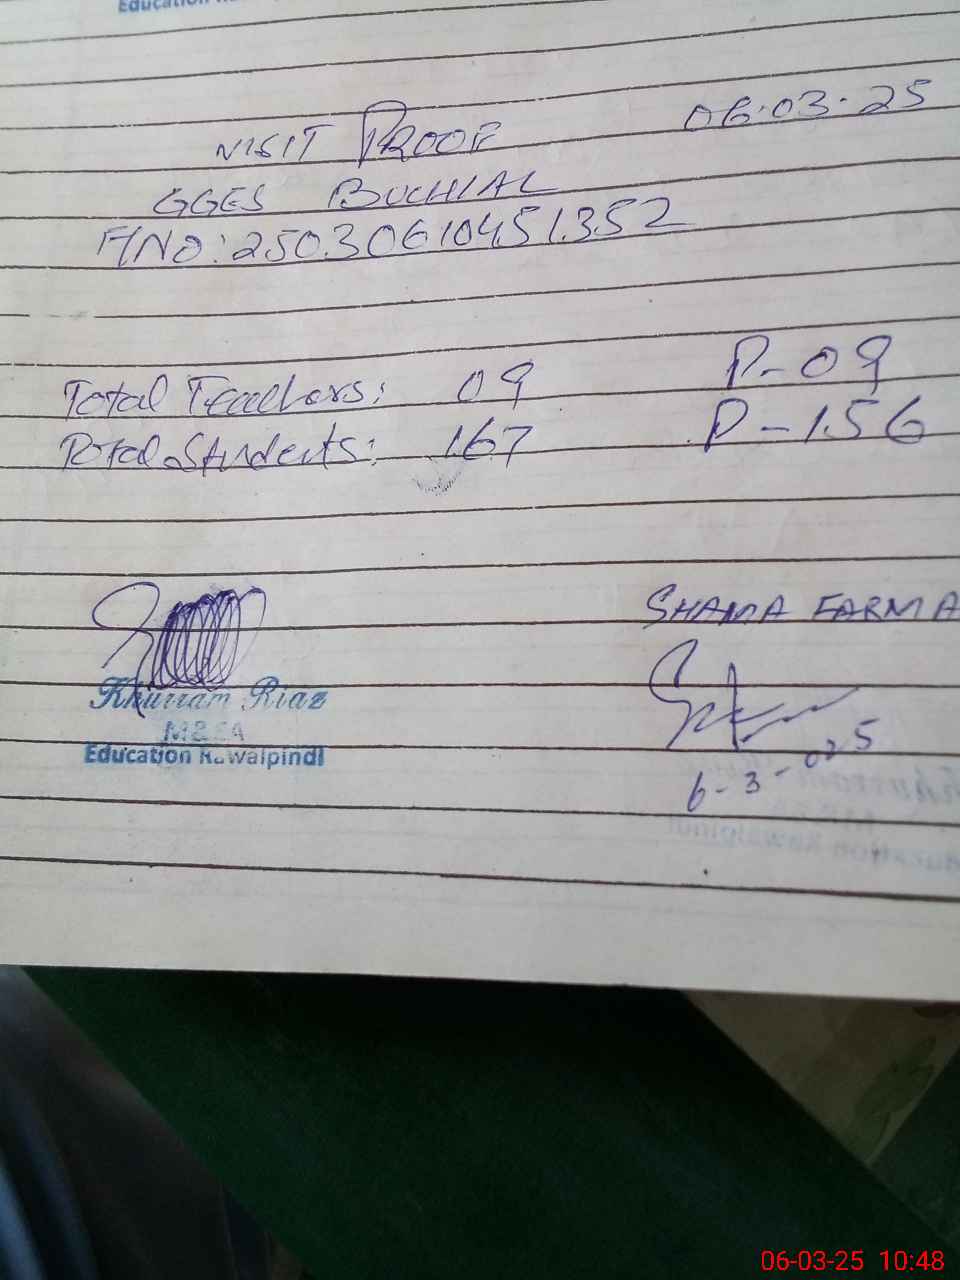 Education
VISIT PROOF 06.03.25
GGES BUCHIAL
F/NO: 25030610451352
Total Teachers: 09 P-09
Total Students: 167 P-156
SHAMA FARMA
Khurram Riaz
MEA
Education Rawalpindi
6-3-025
06-03-25 10:48